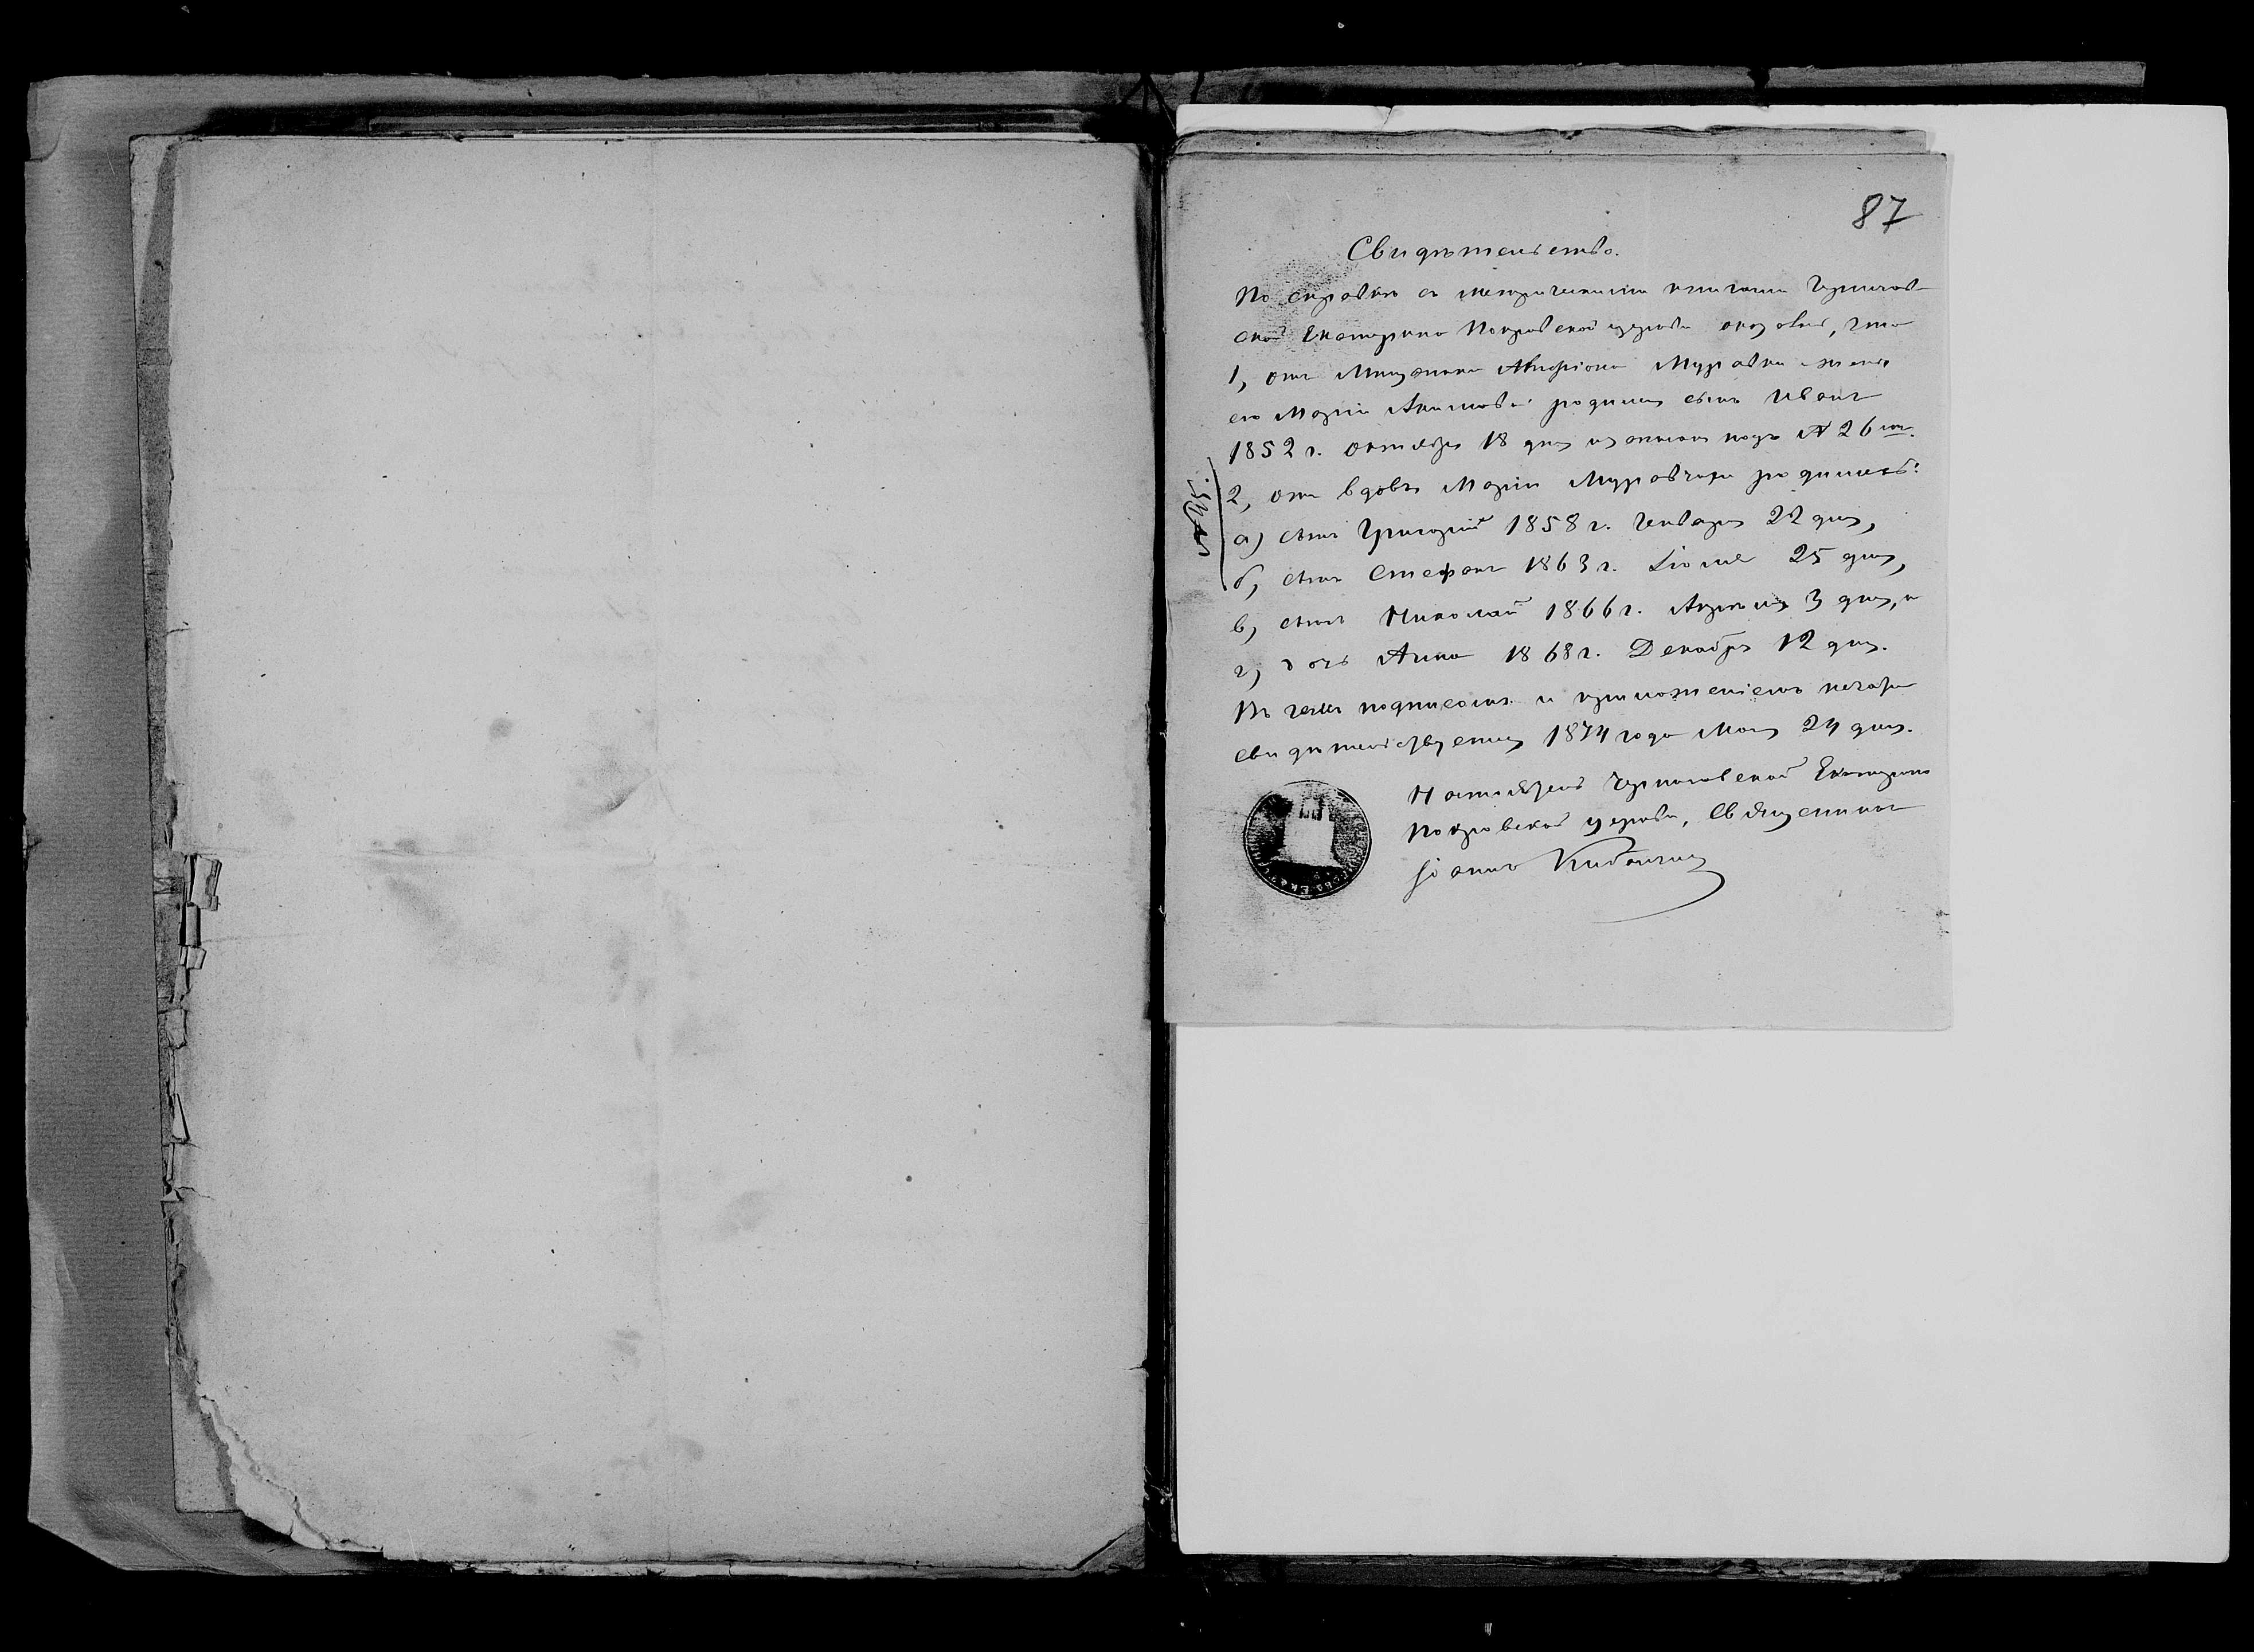 87
Свидѣтельство.
По справкѣ съ метрическими книгами Чернигов-
ской Екатерино Покровской церкви оказалось, что
1, отъ Мищанина Муравки и жены
его Маріи Акимовой родился сынъ Иванъ
1852 г. Октября 18 дня и записанъ подъ № 26 мъ.
2, отъ вдовы Маріи Муравчихи родились:
а) сынъ Григорій 1858 г. Генваря 22 дня,
б) сынъ Стефанъ 1863 г. Іюля 25 дня,
в) сынъ Николай 1866 г. Апрѣля 3 дня, и
г) дочь Анна 1868 г. Декабря 12 дня.
Въ чемъ подписомъ и приложеніемъ печати
свидѣтельствуется 1874 года Мая 24 дня.
Настоятель Черниговской Екатерино
Покровской церкви, Священникъ
Іоаннъ